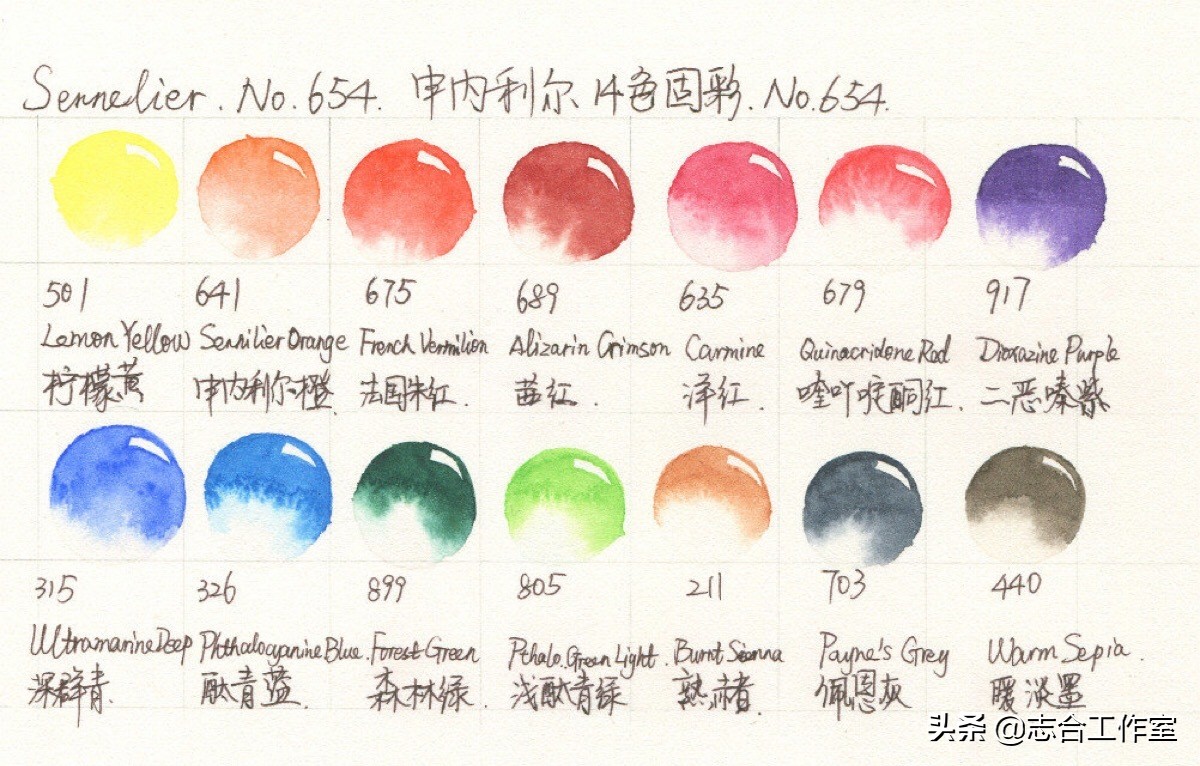 Sennelier. No.654. 申内利尔、14色固彩. No.654.
501 641 675 689 635 679 917
Lemon Yellow Sennilier Orange French Vermilion Alizarin Crimson Carmine Quinacridone Red Dioxazine Purple
柠檬黄 申内利尔橙. 法国朱红. 茜红. 洋红. 喹吖啶酮红. 二恶嗪紫
315 326 899 805 211 703 440
Ultramarine Deep Phthalocyanine Blue. Forest Green Pthalo.Green Light. Burnt Sienna Payne's Grey Warm Sepia.
深群青. 酞青蓝. 森林绿. 浅酞青绿 熟赭. 佩恩灰 暖淡墨
头条 @志合工作室